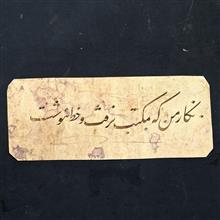 نگار من که بمکتب نرفت و خط ننوشت